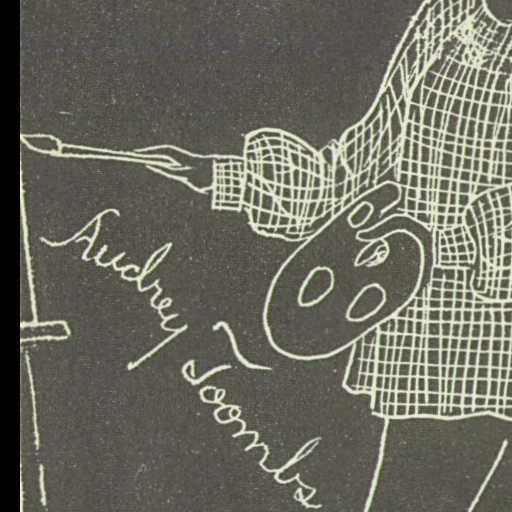 Audrey
Toombs